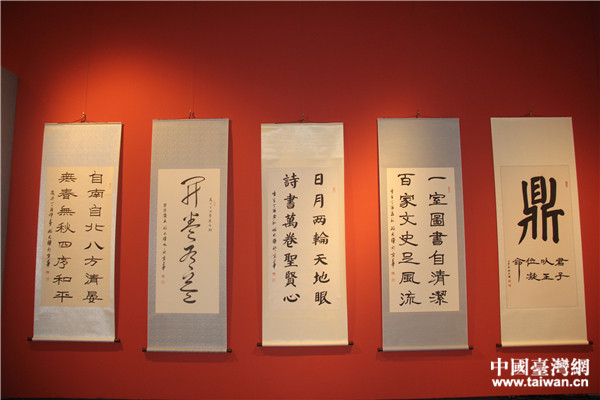 自南自北八方清晏
無春無秋四序和平
開卷有益
日月两輪天地眼
詩書萬卷聖賢心
一室圖書自清潔
百家文史足風流
鼎
君子
以正
位凝
命
中國臺灣網
www.taiwan.cn